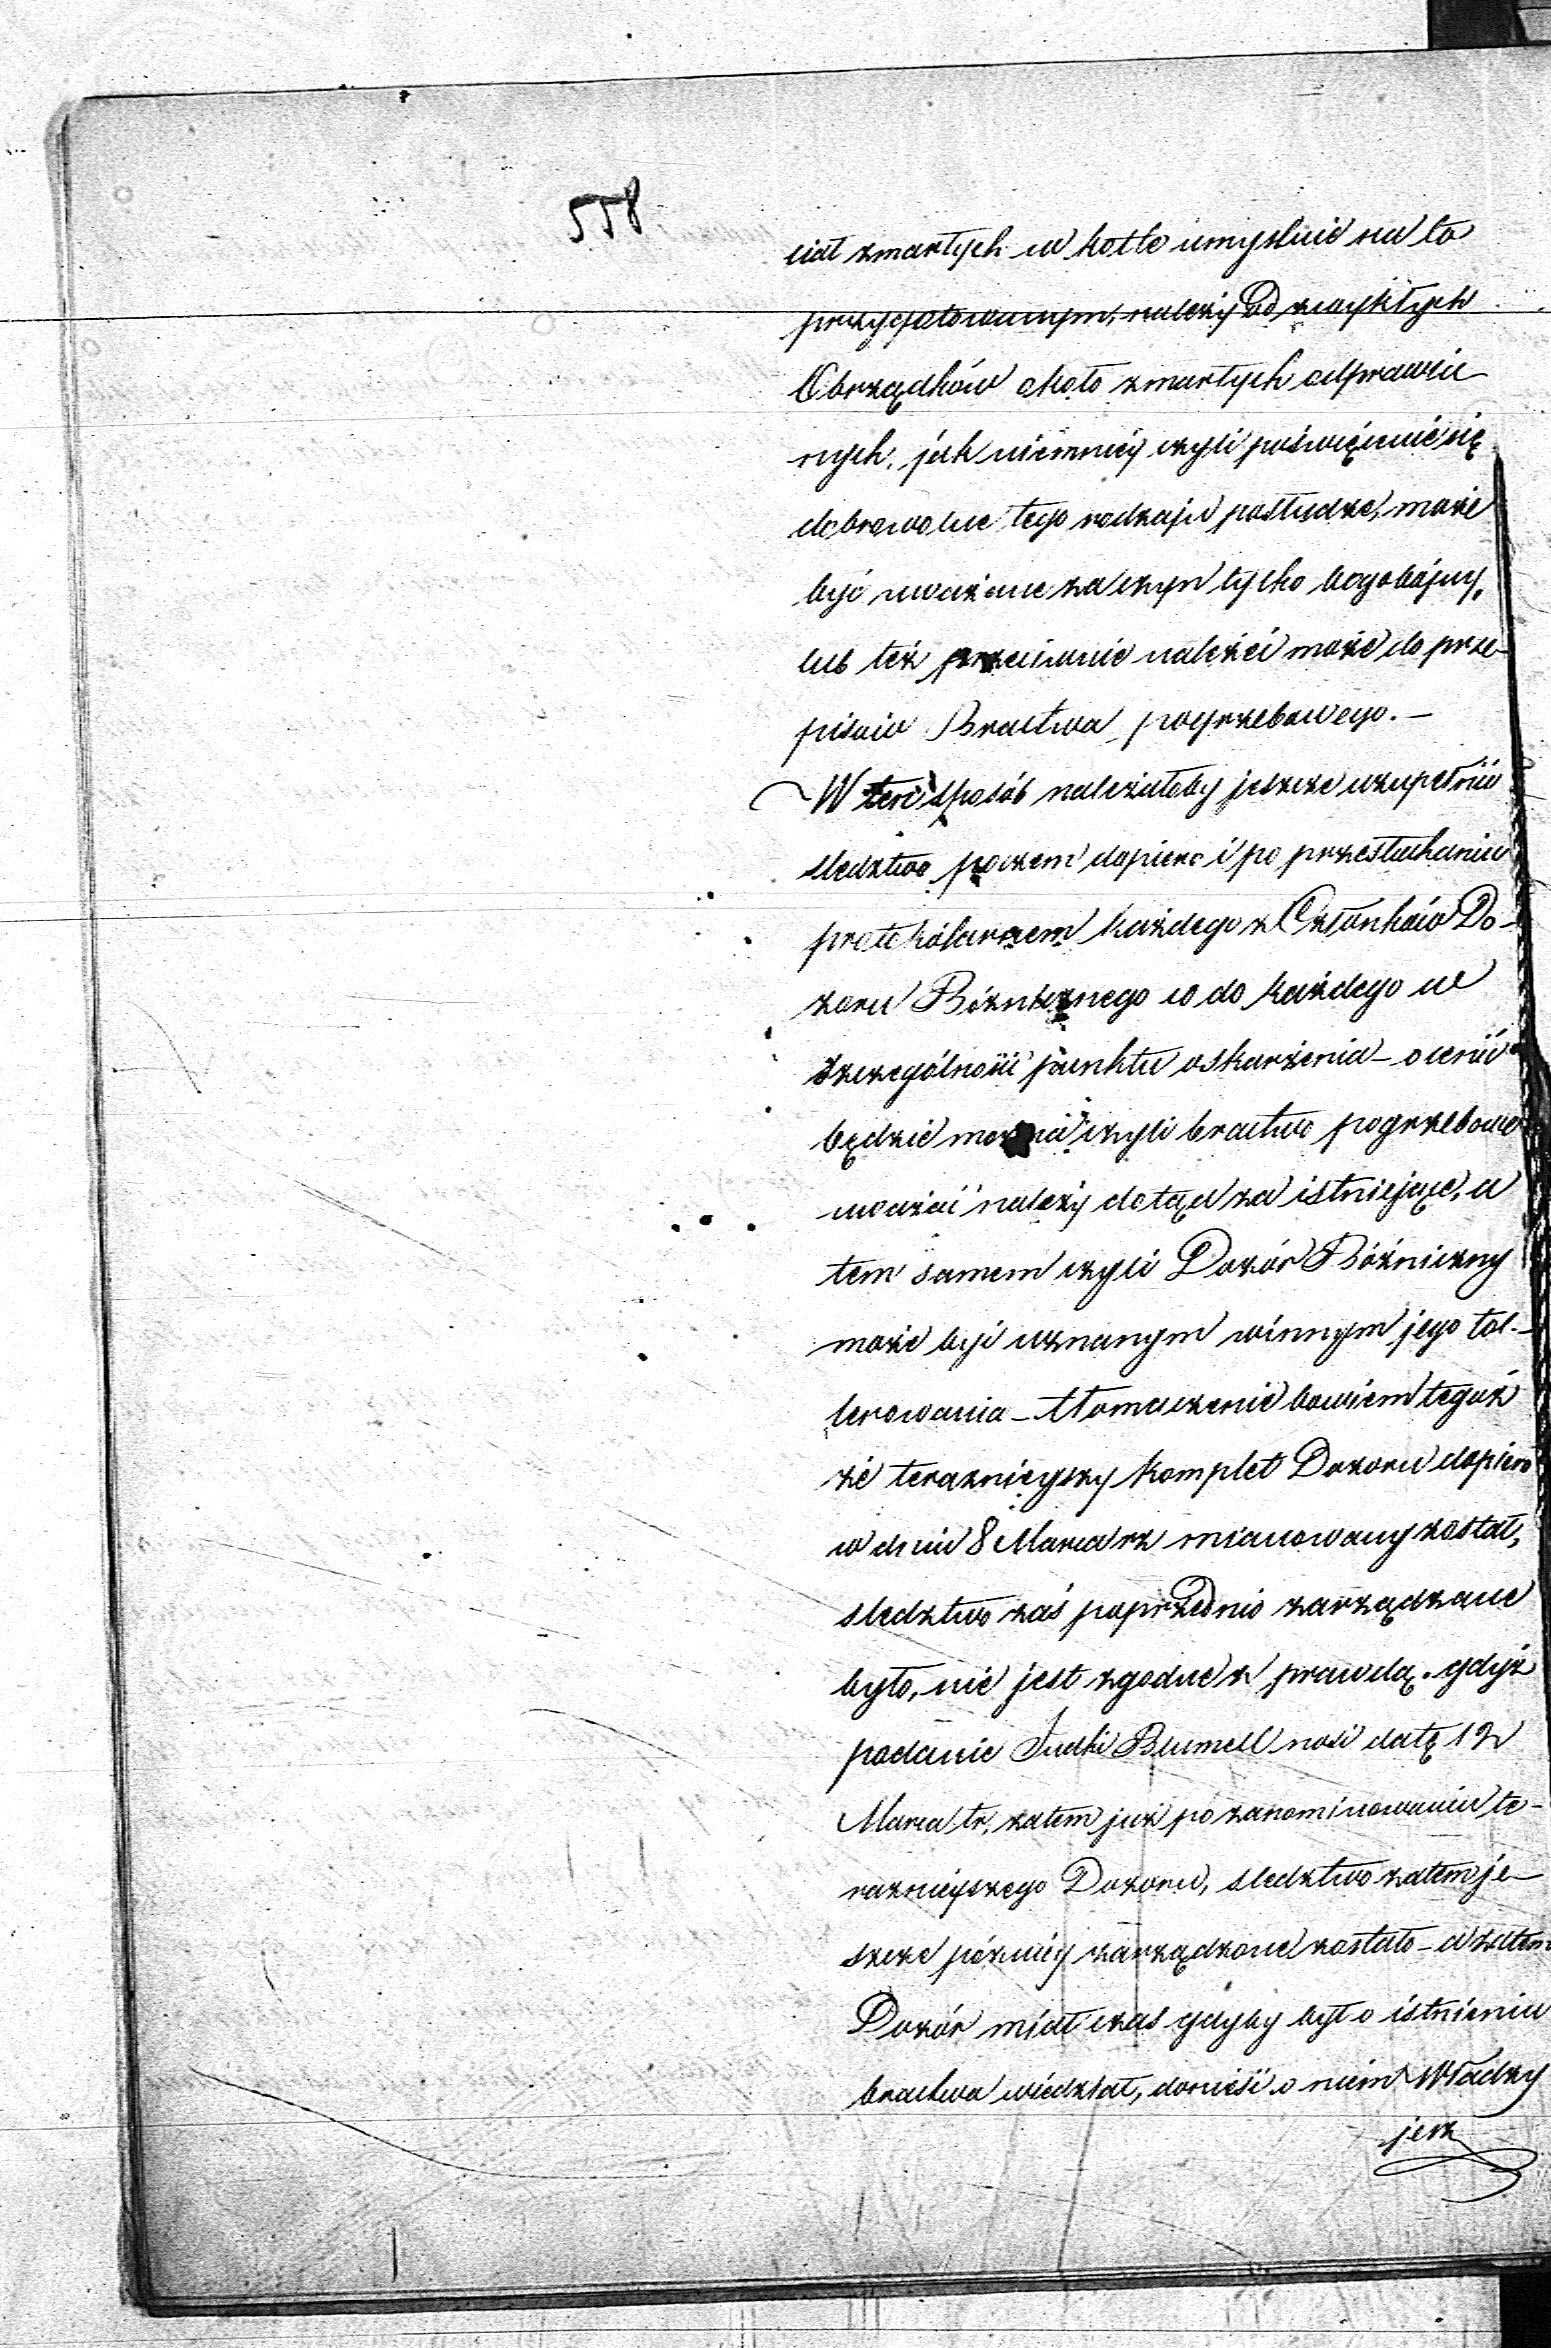 558
ciał zmarłych w kotle umyślnie na to
przygotowanym, należy do zwykłych
Obrządków około zmarłych odprawia
nych, jak niemniéj czyli poświęcenie się
dobrowolne tego rodzaju posłudze, może
być uważane za czyn tylko bogobójny,
lub też przeciwnie należéć może do prze-
pisów Bractwa pogrzebowego. –
W ten sposób należałoby jeszcze uzupełnić
sledztwo poczem dopiero i po przesłuchaniu
protokólarnem każdego z Członków Do-
zoru Bóżniczego co do każdego w
szczególności punktu oskarżenia – ocenić
będzie można czyli bractwo pogrzebowe
uważać należy dotąd za istniejące, a
tem samem czyli Dozór Bóżniczny
może być uznanym winnym jego tol-
lerowania – tłomaczenie bowiem tegoż
że teraznieyszy komplet Dozoru dopiero
w dniu 8 Marca rz mianowany został,
sledztwo zaś poprzednio zarządzone
było, nie jest zgodne z prawdą. gdyż
podanie Judki Blumell nosi datę 12
Marca tr, zatem już po zanominowaniu te-
raznieyszego Dozoru, sledztwo zatem je-
szcze późniéj zarządzone zostało – a zatem
Dozór miał czas gdyby był o istnieniu
bractwa wiedział, donieść o niém Władzy
jesz